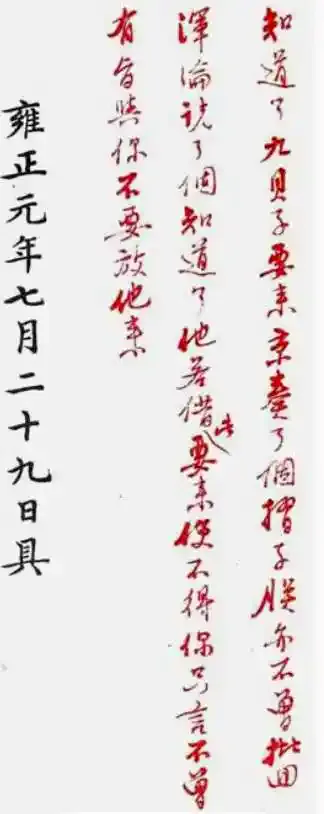 知道了九貝子要来京奏了個摺子朕亦不曾批回
渾淪説了個知道了他若借此要来使不得你只言不曾
有旨與你不要放他来
雍正元年七月二十九日具